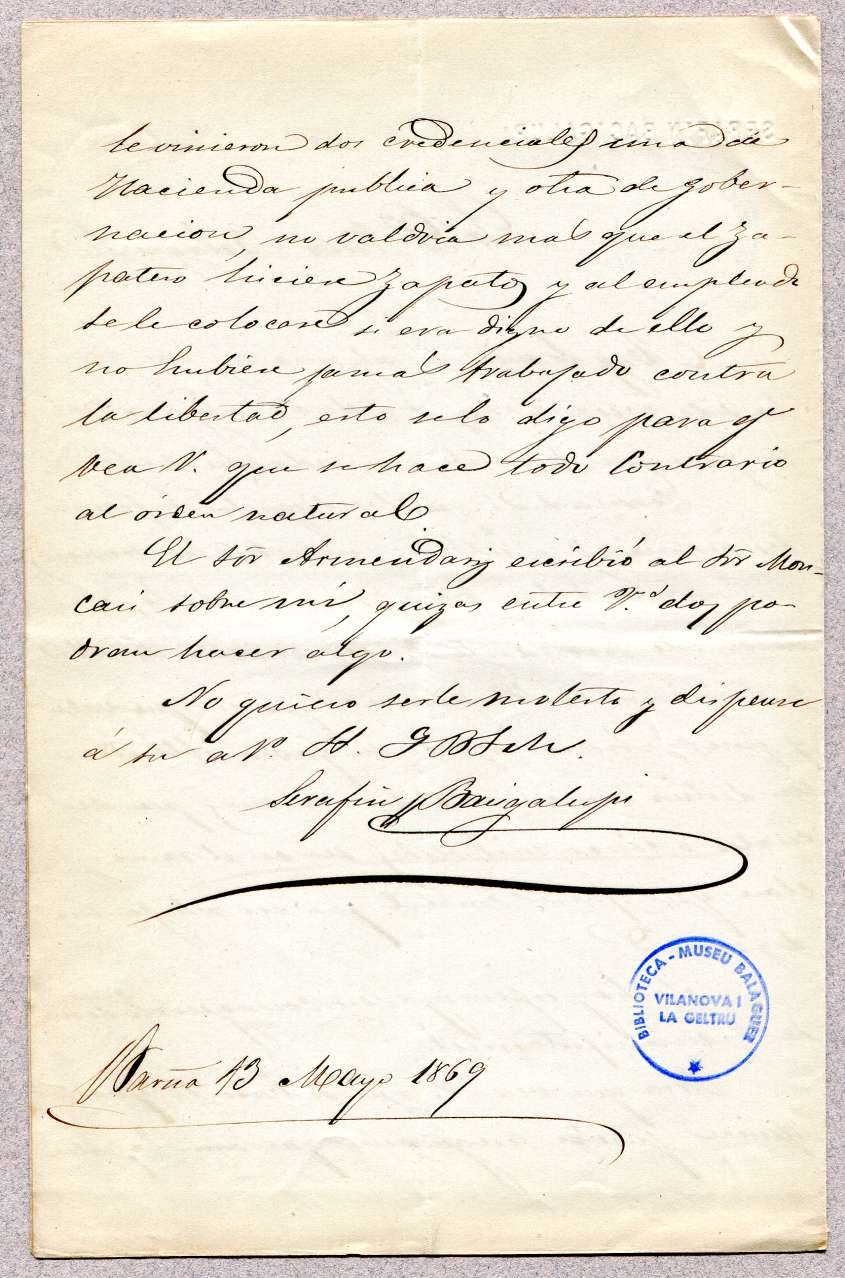 le vinieron dos credenciales una de
Hacienda publica y otra de gober-
nacion, no valdria más que el za-
patero hiciere zapatos y al empleado
se le colocase si era digno de ello y
no hubiese jamás trabajado contra
la libertad, esto solo digo para q.e
vea V. que se hace todo contrario
al órden natural.
El Sõr Armendariz escribió al Sõr Mon-
casi sobre mí, quizas entre V.d dos po-
dran hacer algo.
No quiero serle molesto y dispense
á su a.º S. S. 
Serafin Bacigalupi
Barña 13 Mayo 1869
BIBLIOTECA - MUSEU BALAGUER
VILANOVA I
LA GELTRU